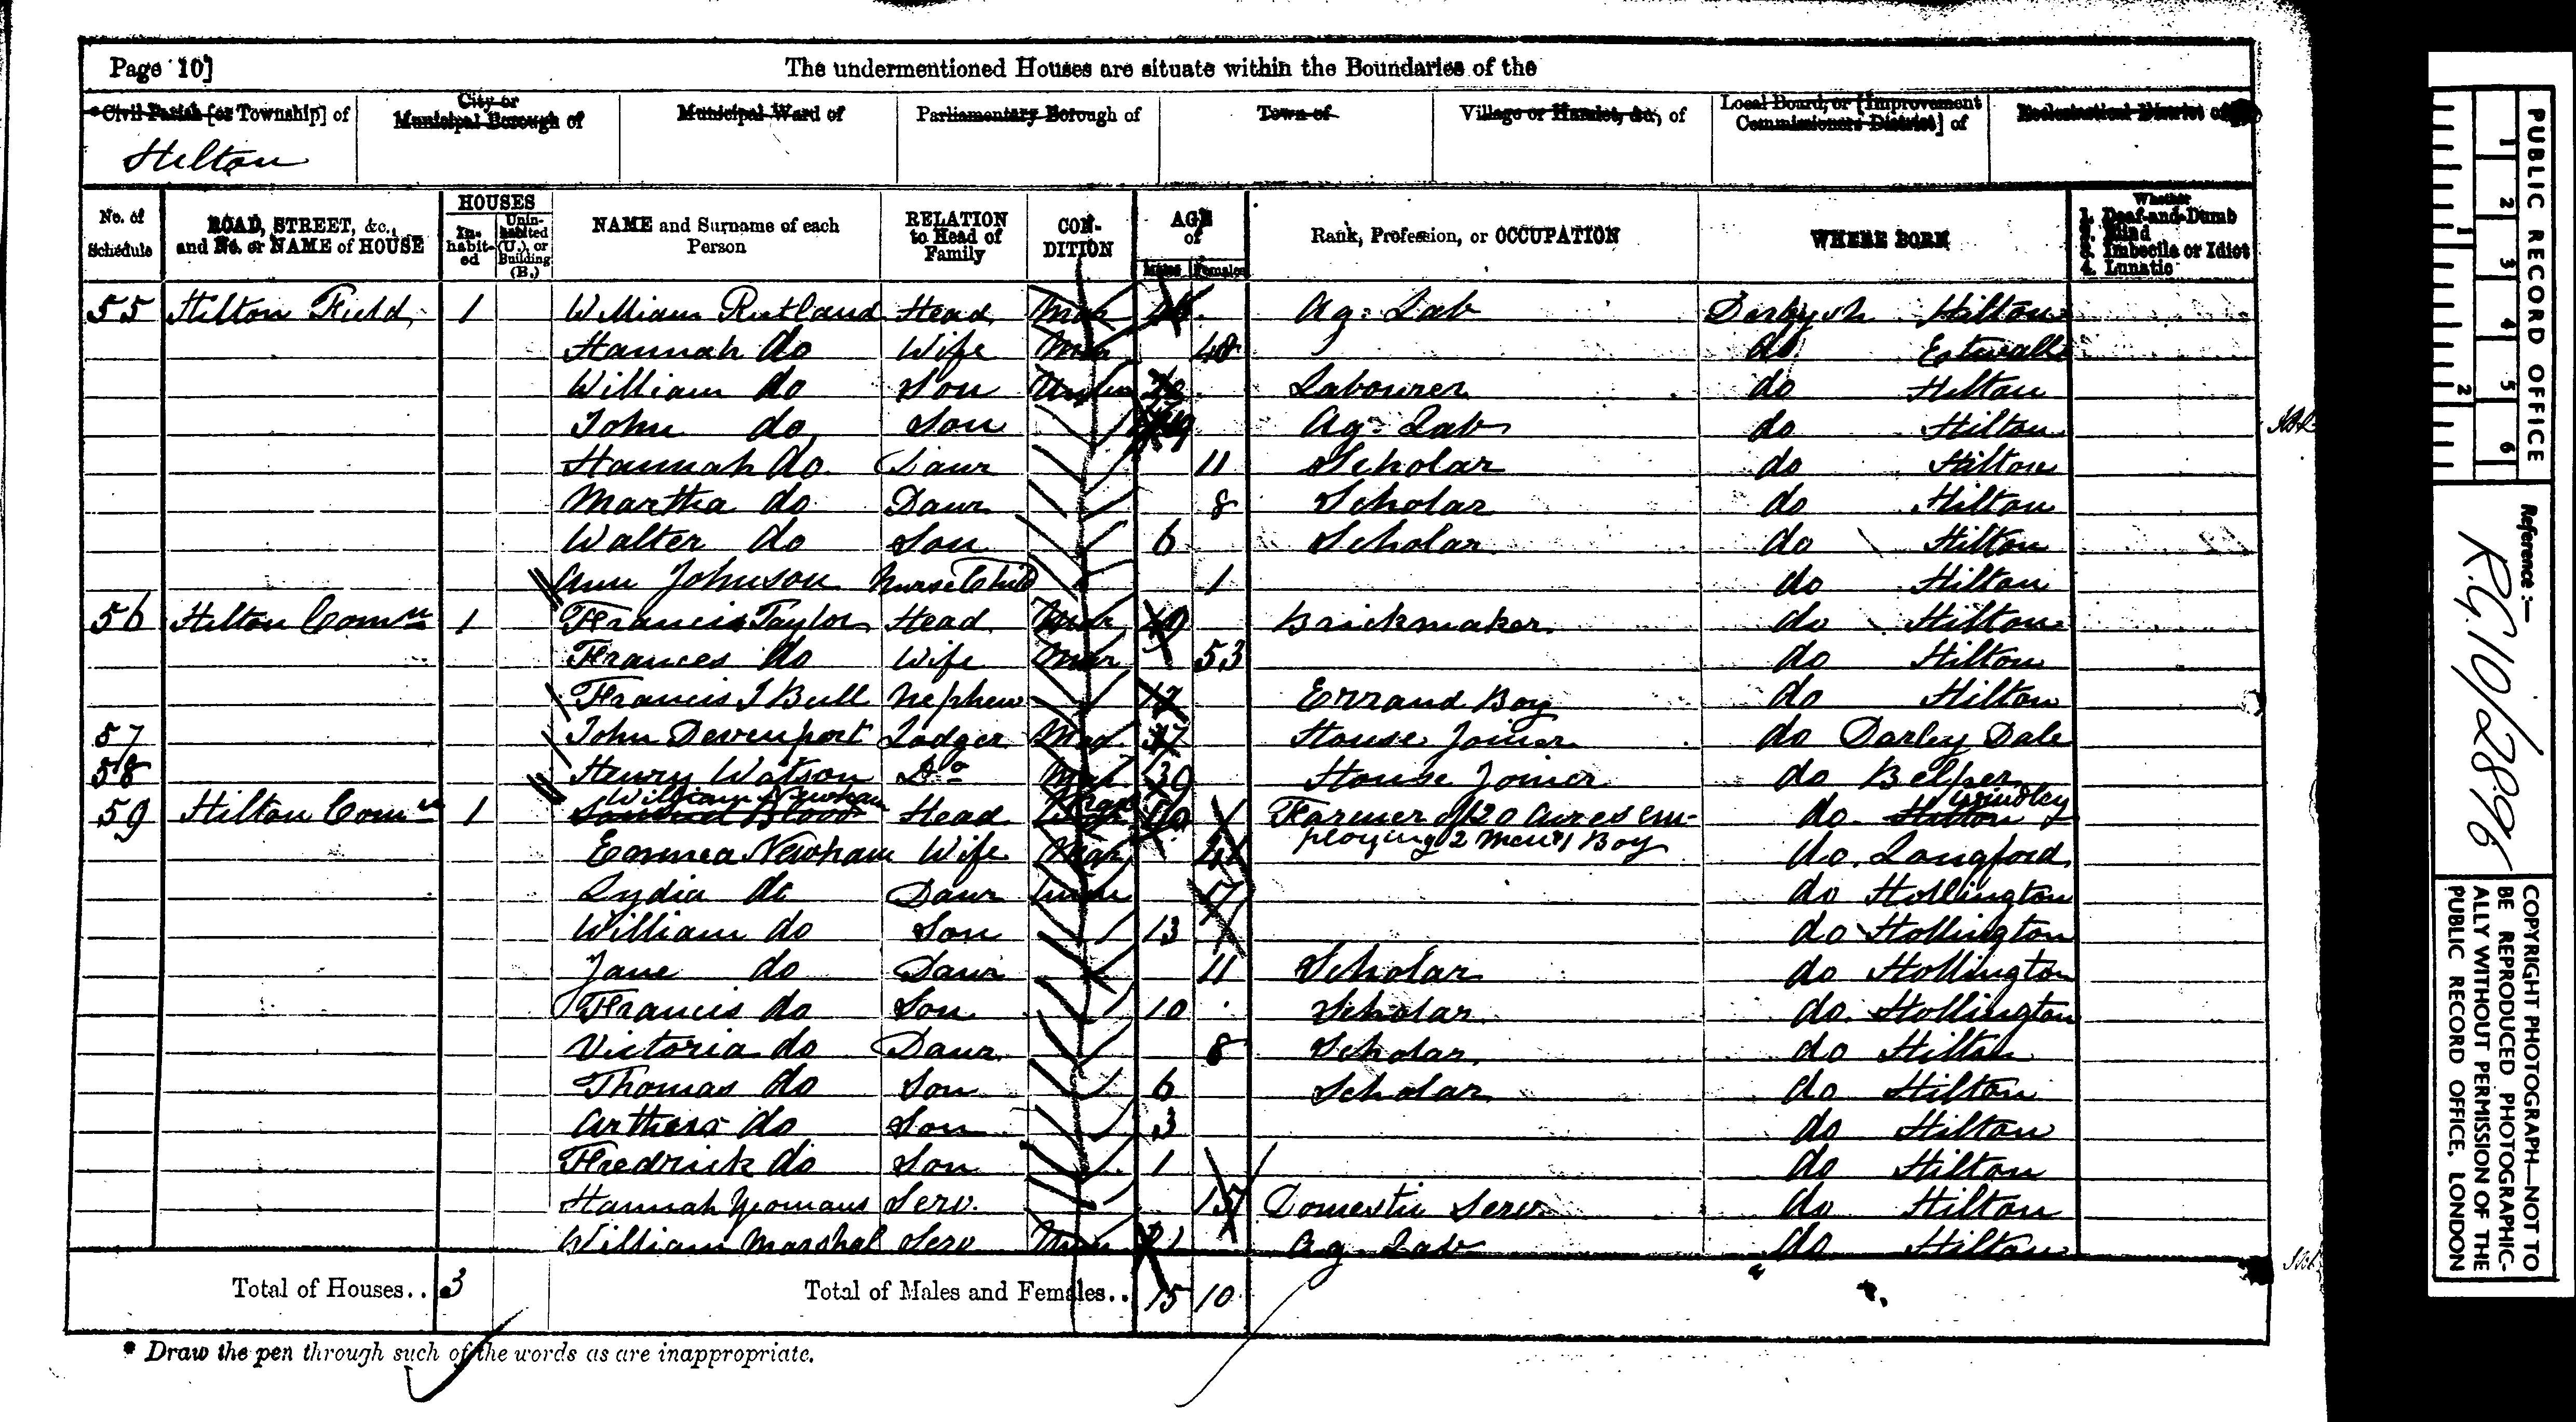 Page 10]
The undermentioned Houses are situate within the Boundaries of the
*Civil Parish [or Township] of
City or Municipal Borough of
Municipal Ward of
Parliamentary Borough of
Town of
Village or Hamlet, &c., of
Local Board, or [Improvement Commissioners District] of
Ecclesiastical District of
Hilton
No. of Schedule
ROAD, STREET, &c., and No. or NAME of HOUSE
HOUSES
Inhabited
Uninhabited (U.), or Building (B.)
NAME and Surname of each Person
RELATION to Head of Family
CONDITION
AGE of
Males Females
Rank, Profession, or OCCUPATION
WHERE BORN
Whether
1. Deaf-and-Dumb
2. Blind
3. Imbecile or Idiot
4. Lunatic
55 Hilton Field 1 William Rutland Head Mar Ag: Lab Derbysh Hilton
Hannah do Wife Mar 48 do Etwall
William do Son Unm Labourer do Hilton
John do Son Ag: Lab do Hilton
Hannah do Daur 11 Scholar do Hilton
Martha do Daur 8 Scholar do Hilton
Walter do Son 6 Scholar do Hilton
Ann Johnson Nurse Child 1 do Hilton
56 Hilton Comn 1 Francis Taylor Head Mar Brickmaker do Hilton
Frances do Wife Mar 53 do Hilton
Francis J Bull Nephew 12 Errand Boy do Hilton
57 John Devenport Lodger 37 House Joiner do Darley Dale
58 Henry Watson Do 30 House Joiner do Belper
59 Hilton Comn 1 William Newham Head Mar Farmer of 120 Acres em- do Windley
ploying 2 men & 1 Boy
Emmea Newham Wife Mar do Langford
Lydia do Daur Unm do Hollington
William do Son 13 do Hollington
Jane do Daur 11 Scholar do Hollington
Francis do Son 10 Scholar do Hollington
Victoria do Daur 8 Scholar do Hilton
Thomas do Son 6 Scholar do Hilton
Arther do Son 3 do Hilton
Fredrick do Son 1 do Hilton
Hannah Yeomans Serv. 15 Domestic Serv do Hilton
William Marshal Serv Unm 21 Ag Lab do Hilton
Total of Houses.. 3
Total of Males and Females.. 15 10
* Draw the pen through such of the words as are inappropriate.
PUBLIC RECORD OFFICE
1 2 3 4 5 6
1 2
Reference :-
R.G. 10/2896
COPYRIGHT PHOTOGRAPH—NOT TO
BE REPRODUCED PHOTOGRAPHIC-
ALLY WITHOUT PERMISSION OF THE
PUBLIC RECORD OFFICE, LONDON